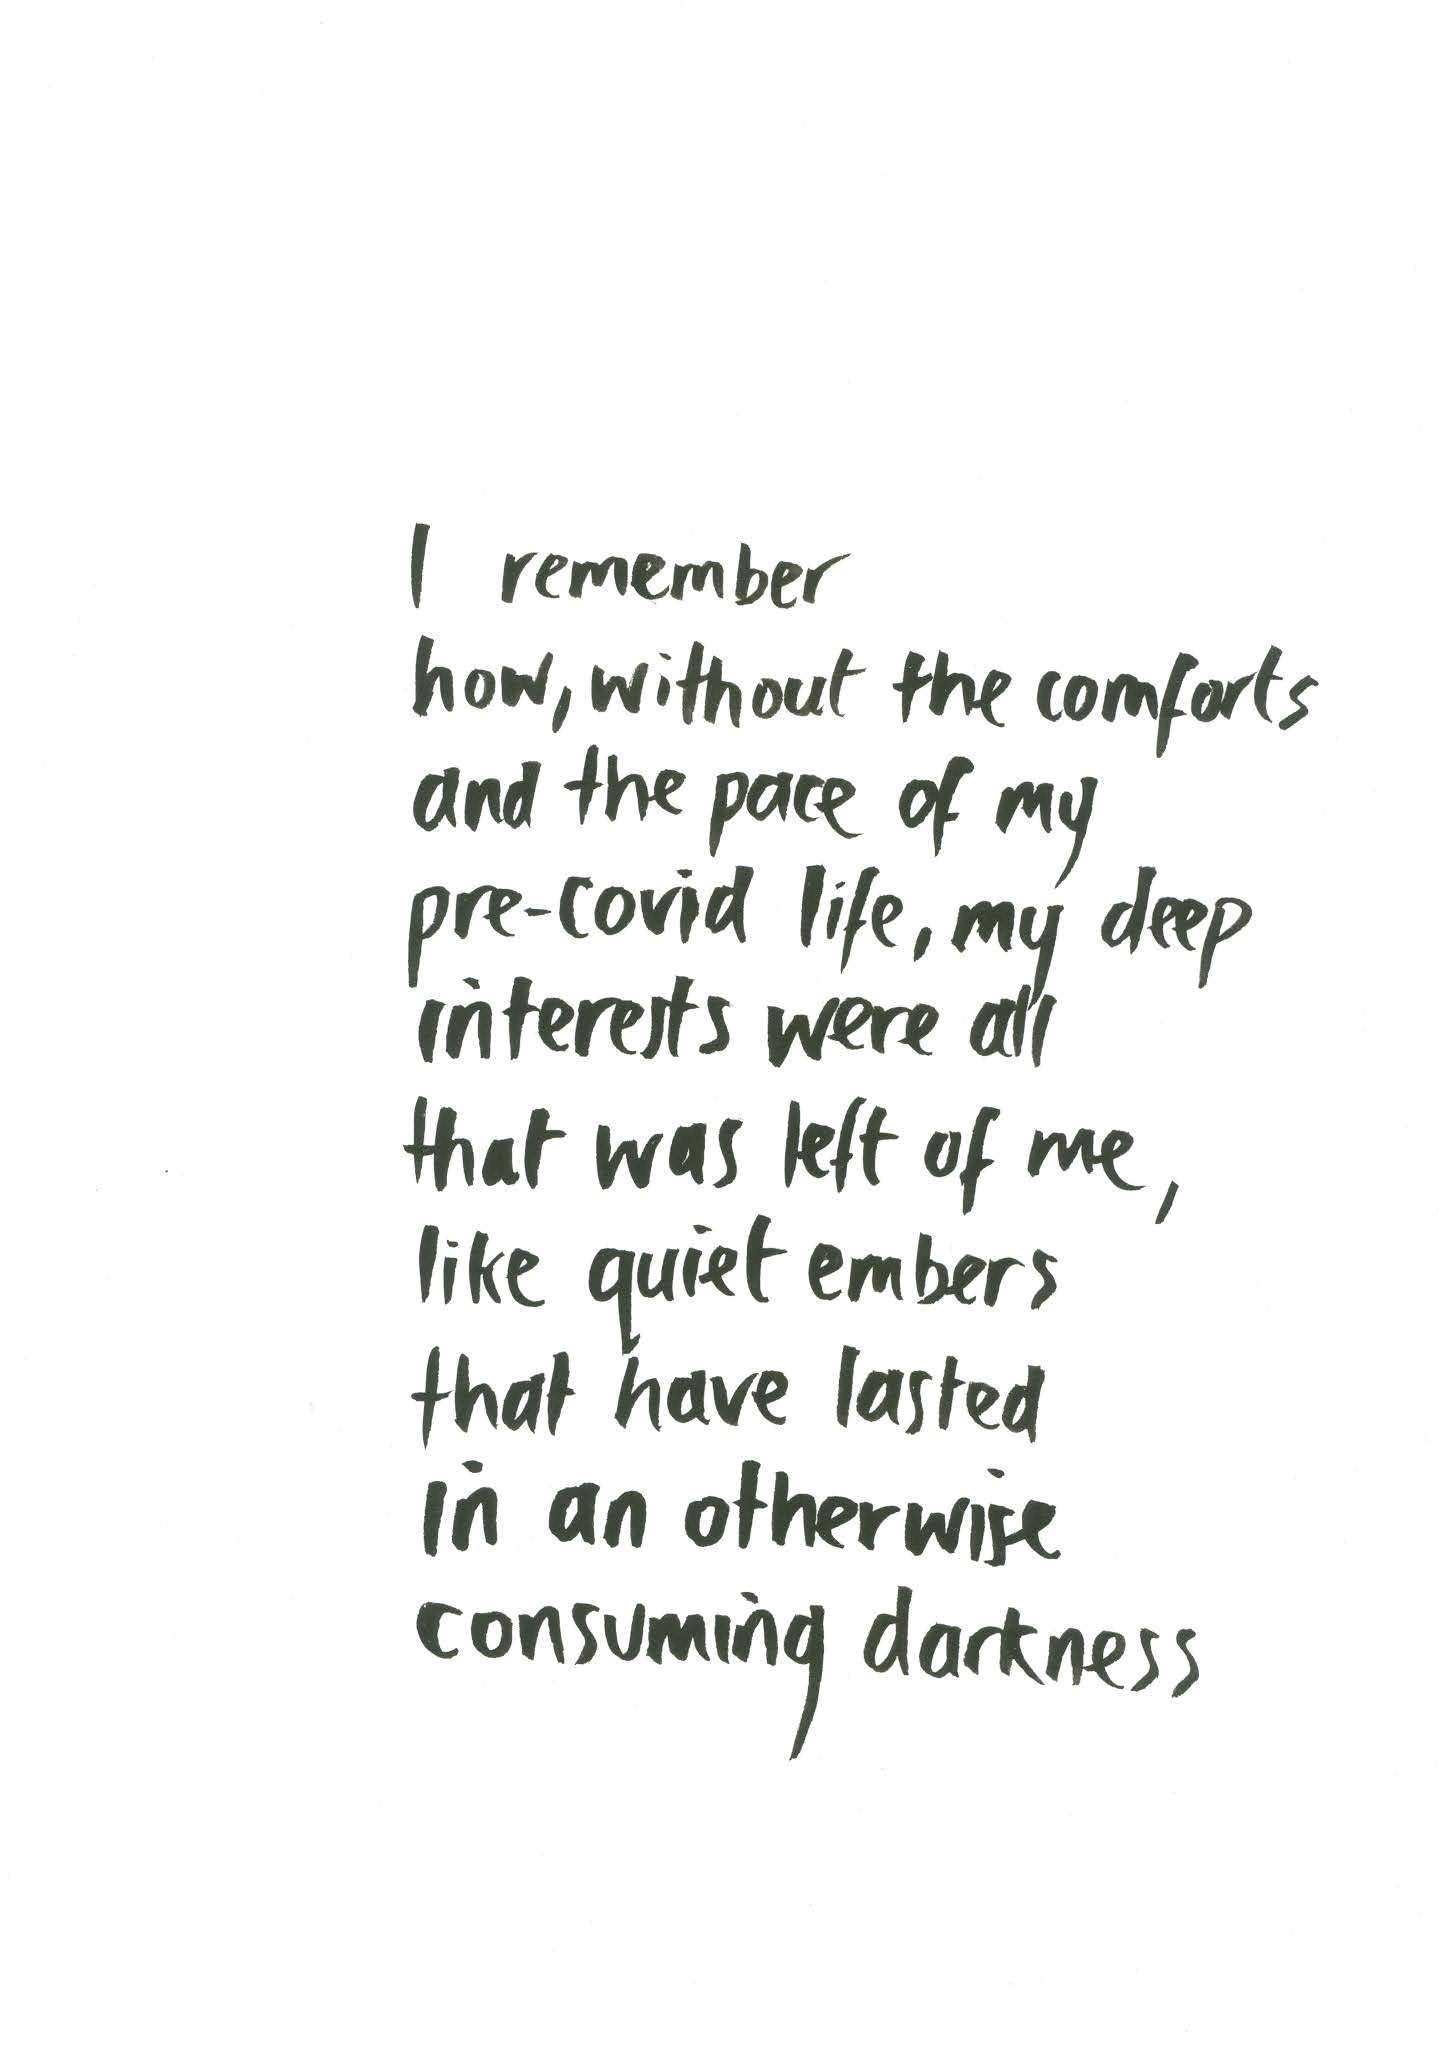 I remember
how, without the comforts
and the pace of my
pre-covid life, my deep
interests were all
that was left of me,
like quiet embers
that have lasted
in an otherwise
consuming darkness